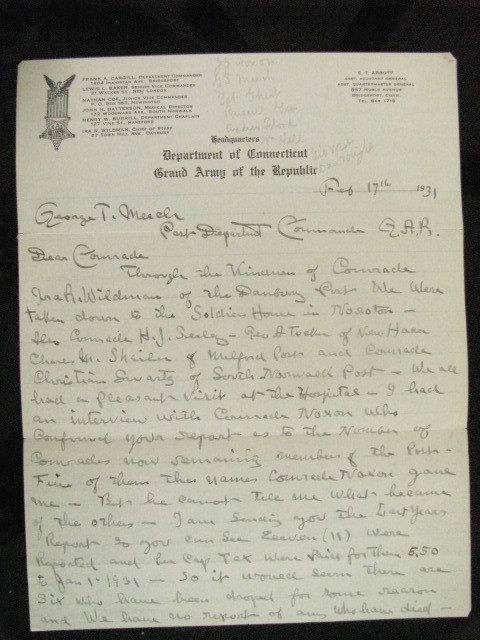 FRANK A. CARGILL, DEPARTMENT COMMANDER
LEWIS L. BAKER, SENIOR VICE COMMANDER
31 WALDEN ST., NEW LONDON
NATHAN COE, JUNIOR VICE COMMANDER
P. O. BOX 182,
JOHN H. BATTERSON, MEDICAL DIRECTOR
SOUTH NORWALK
HENRY W. BURRILL, DEPARTMENT CHAPLAIN
127 VINE ST., HARTFORD
IRA R. WILDMAN, CHIEF OF STAFF
27 TOWN HILL AVE., DANBURY
ASST. ADJUTANT GENERAL
ASST. QUARTERMASTER GENERAL
BRIDGEPORT, CONN.
Headquarters
Department of Connecticut
Grand Army of the Republic
17th 1931
George T. Meech
Past Department Commander G.A.R.
Dear Comrade
Through the Kindness of Comrade
Ira R. Wildman of the Danbury Post We Were
taken down to the Soldiers Home in Noroton —
Also Comrade H. J. Seeley — Geo of New Haven
M. of Milford Post and Comrade
Christian Swartz of South Norwalk Post — We all
had a pleasant visit at the Hospital — I had
an interview with Comrade Noxon Who
confirmed your report as to the Number of
Comrades now remaining members of the Post —
Five of them the names Comrade Noxon gave
me — But he cannot tell me what became
of the others — I am sending you the Last Years
Report so you can see Eleven (11) Were
Reported and her Cap Tax Were paid for them 5.50
to Jan 1 - 1931 — So it would seem there are
Six who have been droped for some reason
and We have no report of any Who have died —